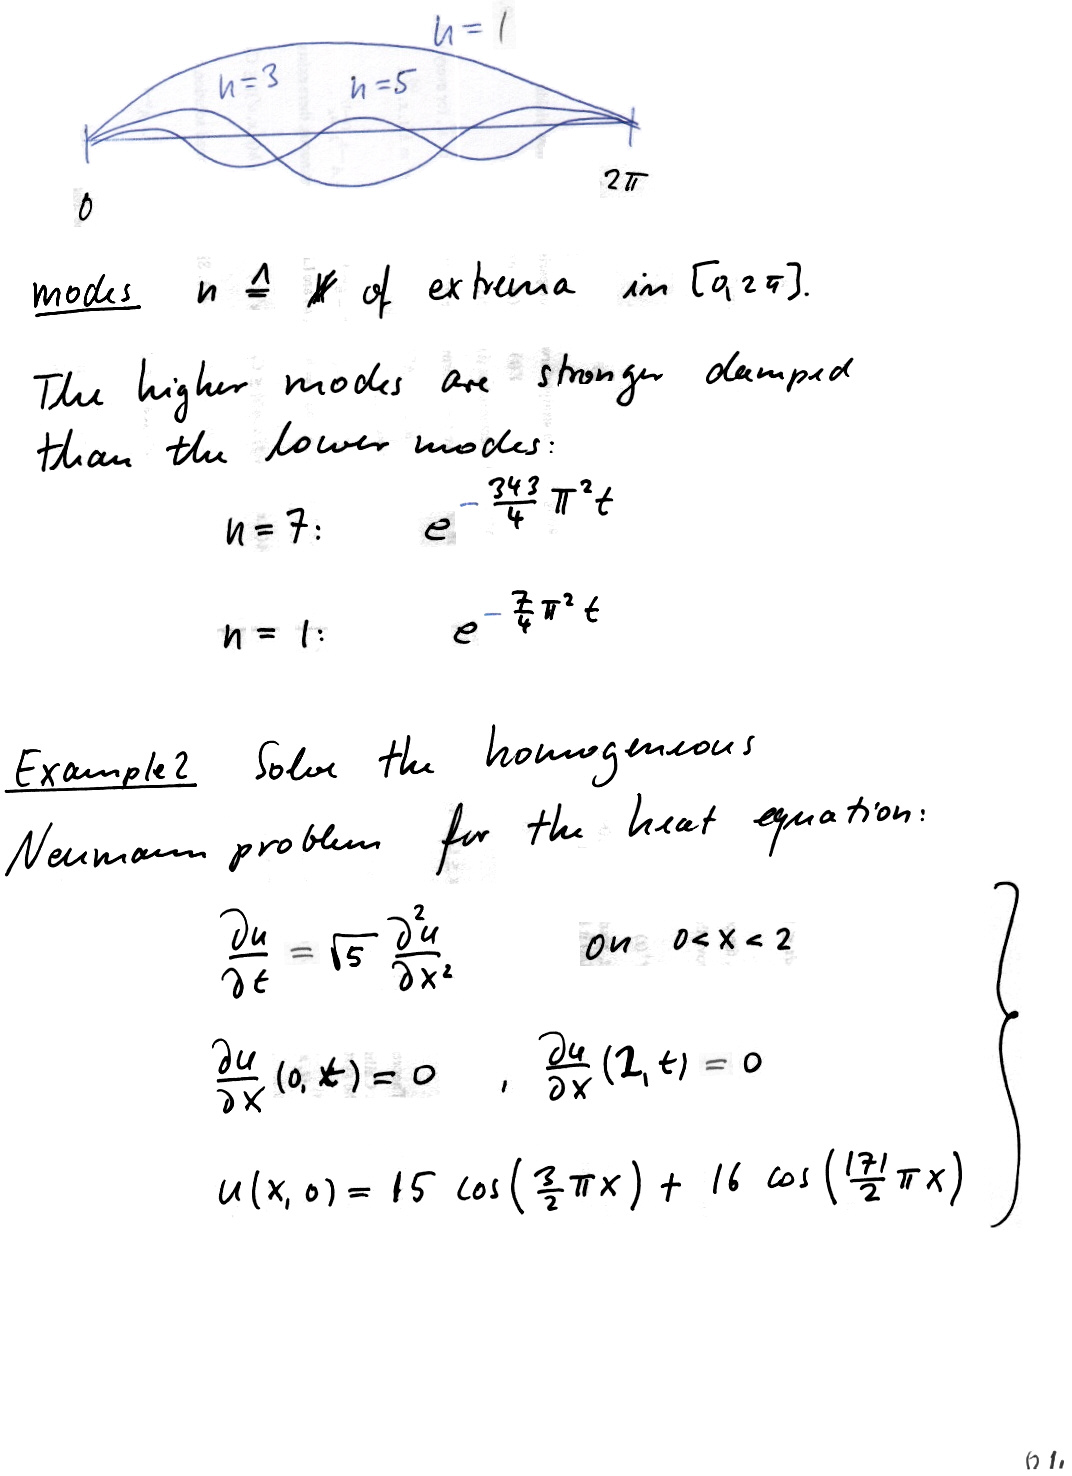 n = 1
n=3 n=5
0 2π
modes n ≙ # of extrema in [0, 2π].
The higher modes are stronger damped
than the lower modes:
n = 7: e^{-\frac{343}{4} π² t}
n = 1: e^{-\frac{7}{4} π² t}
Example 2 Solve the homogeneous
Neumann problem for the heat equation:
∂u/∂t = √5 ∂²u/∂x² on 0 < x < 2
∂u/∂x (0, t) = 0 , ∂u/∂x (2, t) = 0
u(x, 0) = 15 cos(3/2 πx) + 16 cos(171/2 πx)